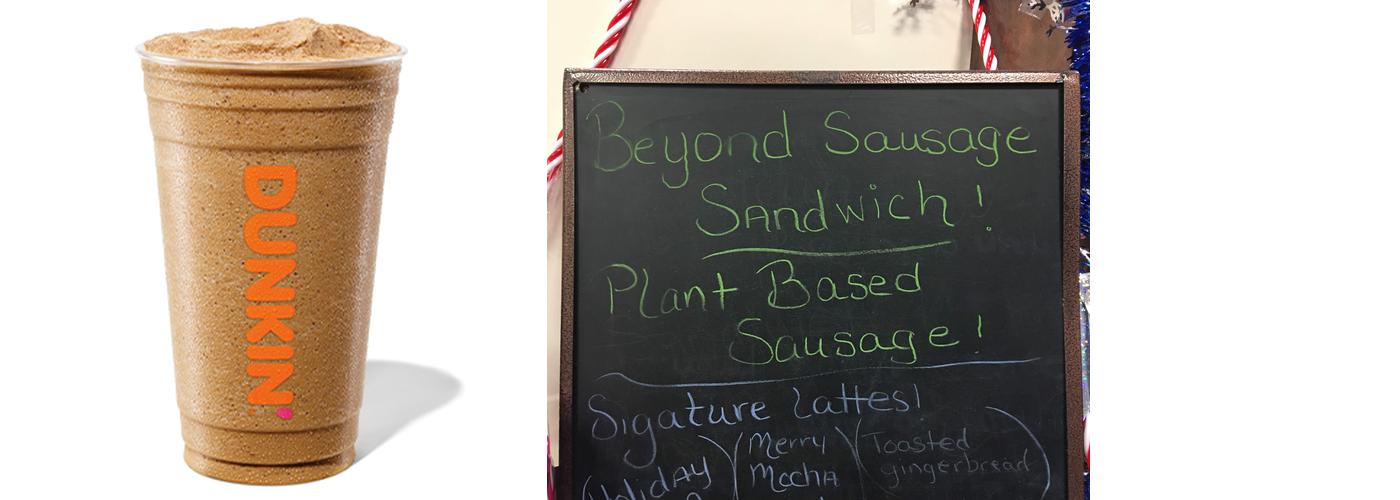 DUNKIN'
Beyond Sausage
Sandwich!
Plant Based
Sausage!
Sigature Lattes!
Merry
Mocha
Toasted
gingerbread
Holiday